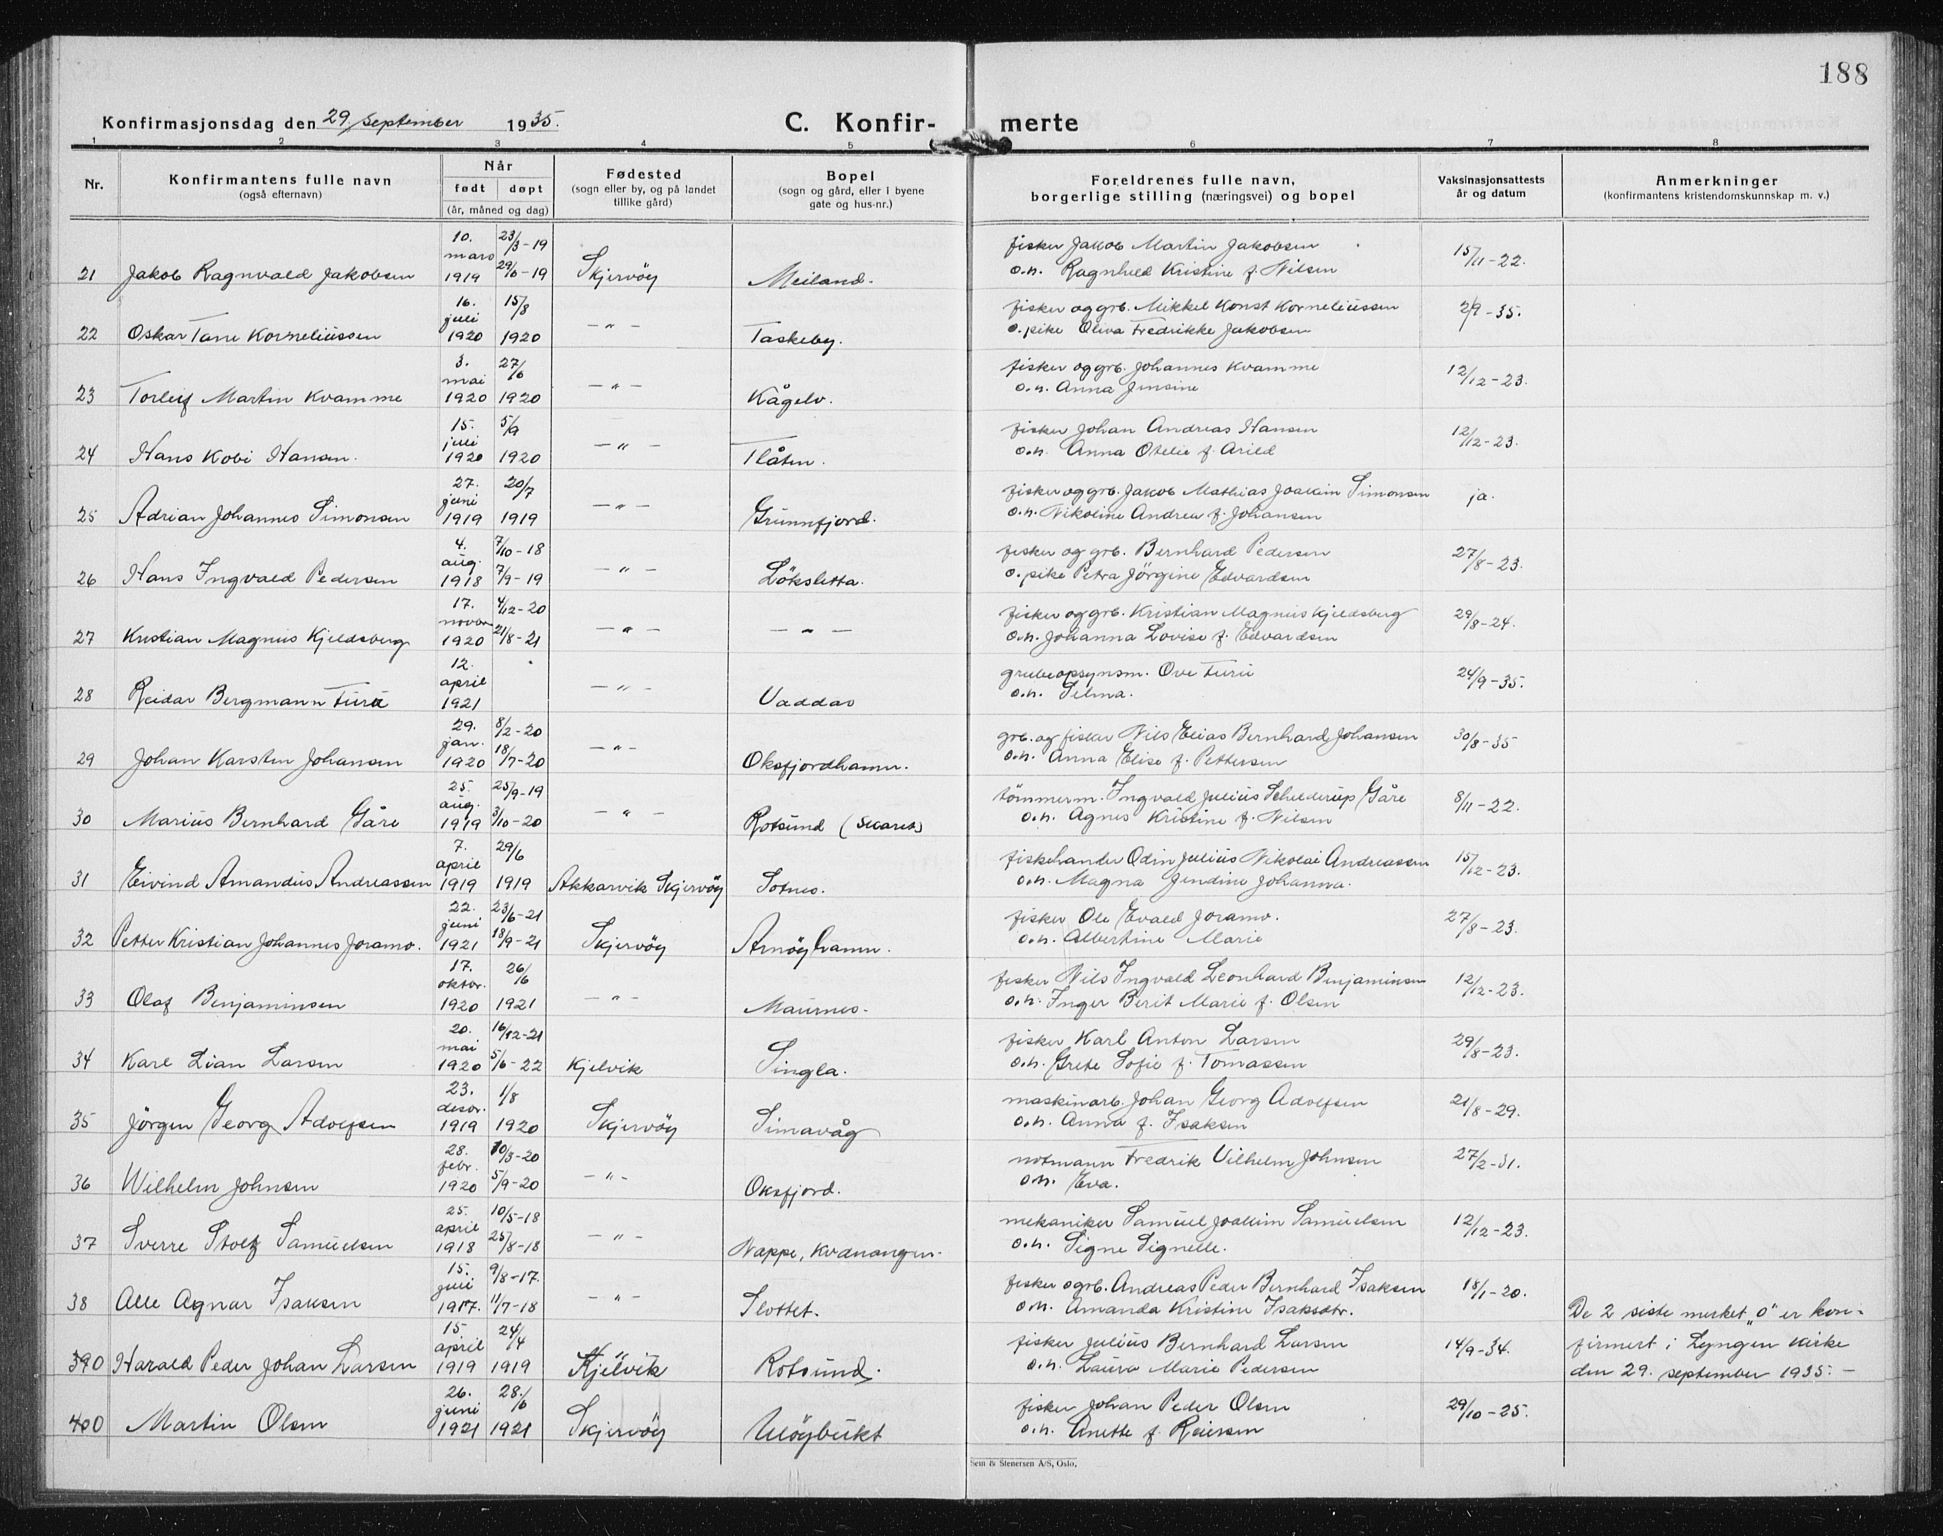 188
Konfirmasjonsdag den 29. september 1935.
C. Konfir- merte
1 2 3 4 5 6 7 8
Nr.
Konfirmantens fulle navn
(også efternavn)
Når
født døpt
(år, måned og dag)
Fødested
(sogn eller by, og på landet
tillike gård)
Bopel
(sogn og gård, eller i byene
gate og hus-nr.)
Foreldrenes fulle navn,
borgerlige stilling (næringsvei) og bopel
Vaksinasjonsattests
år og datum
Anmerkninger
(konfirmantens kristendomskunnskap m. v.)
10. 23/3-19 fisker Jakob Martin Jakobsen
mars 29/6-19 15/11-22.
21 Jakob Ragnvald Jakobsen 1919 Skjervöy Meiland. o.h. Ragnhild Kristine f. Nilsen
16. 15/8 fisker og grb. Mikkel Konst Korneliussen
juli 2/9-35.
22 Oskar Tane Korneliussen 1920 1920 -"- Taskeby. o. pike Oliva Fredrikke Jakobsen
3. 27/6 fisker og grb. Johannes Kvamme
mai 12/12-23.
23 Torleif Martin Kvamme 1920 1920 -"- Kågelv. o.h. Anna Jensine
15. 5/9 fisker Johan Andreas Hansen
juli 12/12-23.
24 Hans Kobi Hansen. 1920 1920 -"- Flåten. o.h. Anna Otelie f. Arild
27. 20/7 fisker og grb. Jakob Mathias Joakim Simonsen
juni ja.
25 Adrian Johannes Simonsen 1919 1919 -"- Grunnfjord. o.h. Nikoline Andrea f. Johansen
4. 7/10-18 fisker og grb. Bernhard Pedersen
aug. 27/8-23.
26 Hans Ingvald Pedersen 1918 7/9-19 -"- Löksletta. o. pike Petra Jörgine Edvardsen
17. 4/12-20 fisker og grb. Kristian Magnus Kjeldsberg
novbr 29/8-24.
27 Kristian Magnus Kjeldsberg 1920 21/8-21 -"- -"- o.h. Johanna Lovise f. Edvardsen
12. grubeopsynsm. Ove Furu
april 24/9-35.
28 Reidar Bergmann Furu 1921 -"- Vaddas o.h. Selma.
29. 8/2-20 grb. og fisker Nils Elias Bernhard Johansen
jan. 30/8-35
29 Johan Karsten Johansen 1920 18/7-20 -"- Oksfjordhamn. o.h. Anna Elise f. Pettersen
25. 25/9-19 tömmerm. Ingvald Julius Schelderup Gåre
aug. 8/11-22.
30 Marius Bernhard Gåre 1919 3/10-20 -"- Rotsund (Skaret) o.h. Agnes Kristine f. Nilsen
7. 29/6 fiskehander Odin Julius Nikolai Andreassen
april 15/12-23.
31 Eivind Amandus Andreassen 1919 1919 Akkarvik Skjervöy Sotnes. o.h. Magna Jendine Johanna.
22. 23/6-21 fisker Ole Evald Joramo.
juni 27/8-23.
32 Petter Kristian Johannes Joramo. 1921 18/9-21 Skjervöy Arnöyhamn. o.h. Albertine Marie
17. 26/6 fisker Nils Ingvald Leonhard Benjaminsen
oktbr. 12/12-23.
33 Olaf Benjaminsen 1920 1921 -"- Maurnes. o.h. Inger Berit Marie f. Olsen
20. 16/12-21 fisker Karl Anton Larsen
mai 29/8-23.
34 Karl Lian Larsen 1920 5/6-22 Kjelvik Singla. o.h. Grete Sofie f. Tomassen
23. 1/8 maskinarb. Johan Georg Adolfsen
desbr. 21/8-29.
35 Jörgen Georg Adolfsen 1919 1920 Skjervöy Simavåg o.h. Anna f. Isaksen
28. 10/3-20 notmann Fredrik Vilhelm Johnsen
febr. 27/2-31.
36 Wilhelm Johnsen 1920 5/9-20 -"- Oksfjord. o.h. Eva.
25. 10/5-18 mekaniker Samuel Joakim Samuelsen
april 12/12-23.
37 Sverre Stolf Samuelsen 1918 25/8-18 -"- Nappe, Kvænangen. o.h. Signe Signelle.
15. 9/8-17. fisker ogrb. Andreas Peder Bernhard Isaksen
juli 18/1-20.
38 Alle Agnar Isaksen 1917. 11/7-18 -"- Slottet. o.h. Amanda Kristine Isaksdtr.
De 2 siste merket "0" er kon-
15 24/4 fisker Julius Bernhard Larsen
april 14/9-34. firmert i Lyngen kirke
390 Harald Peder Johan Larsen 1919 1919 Kjelvik Rotsund. o.h. Laura Marie Pedersen
den 29. september 1935.-
26. 28/6 fisker Johan Peder Olsen
juni 29/10-25.
400 Martin Olsen 1921 1921 Skjervöy Ulöybukt o.h. Anette f. Reiersen
Sem & Stenersen A/S, Oslo.